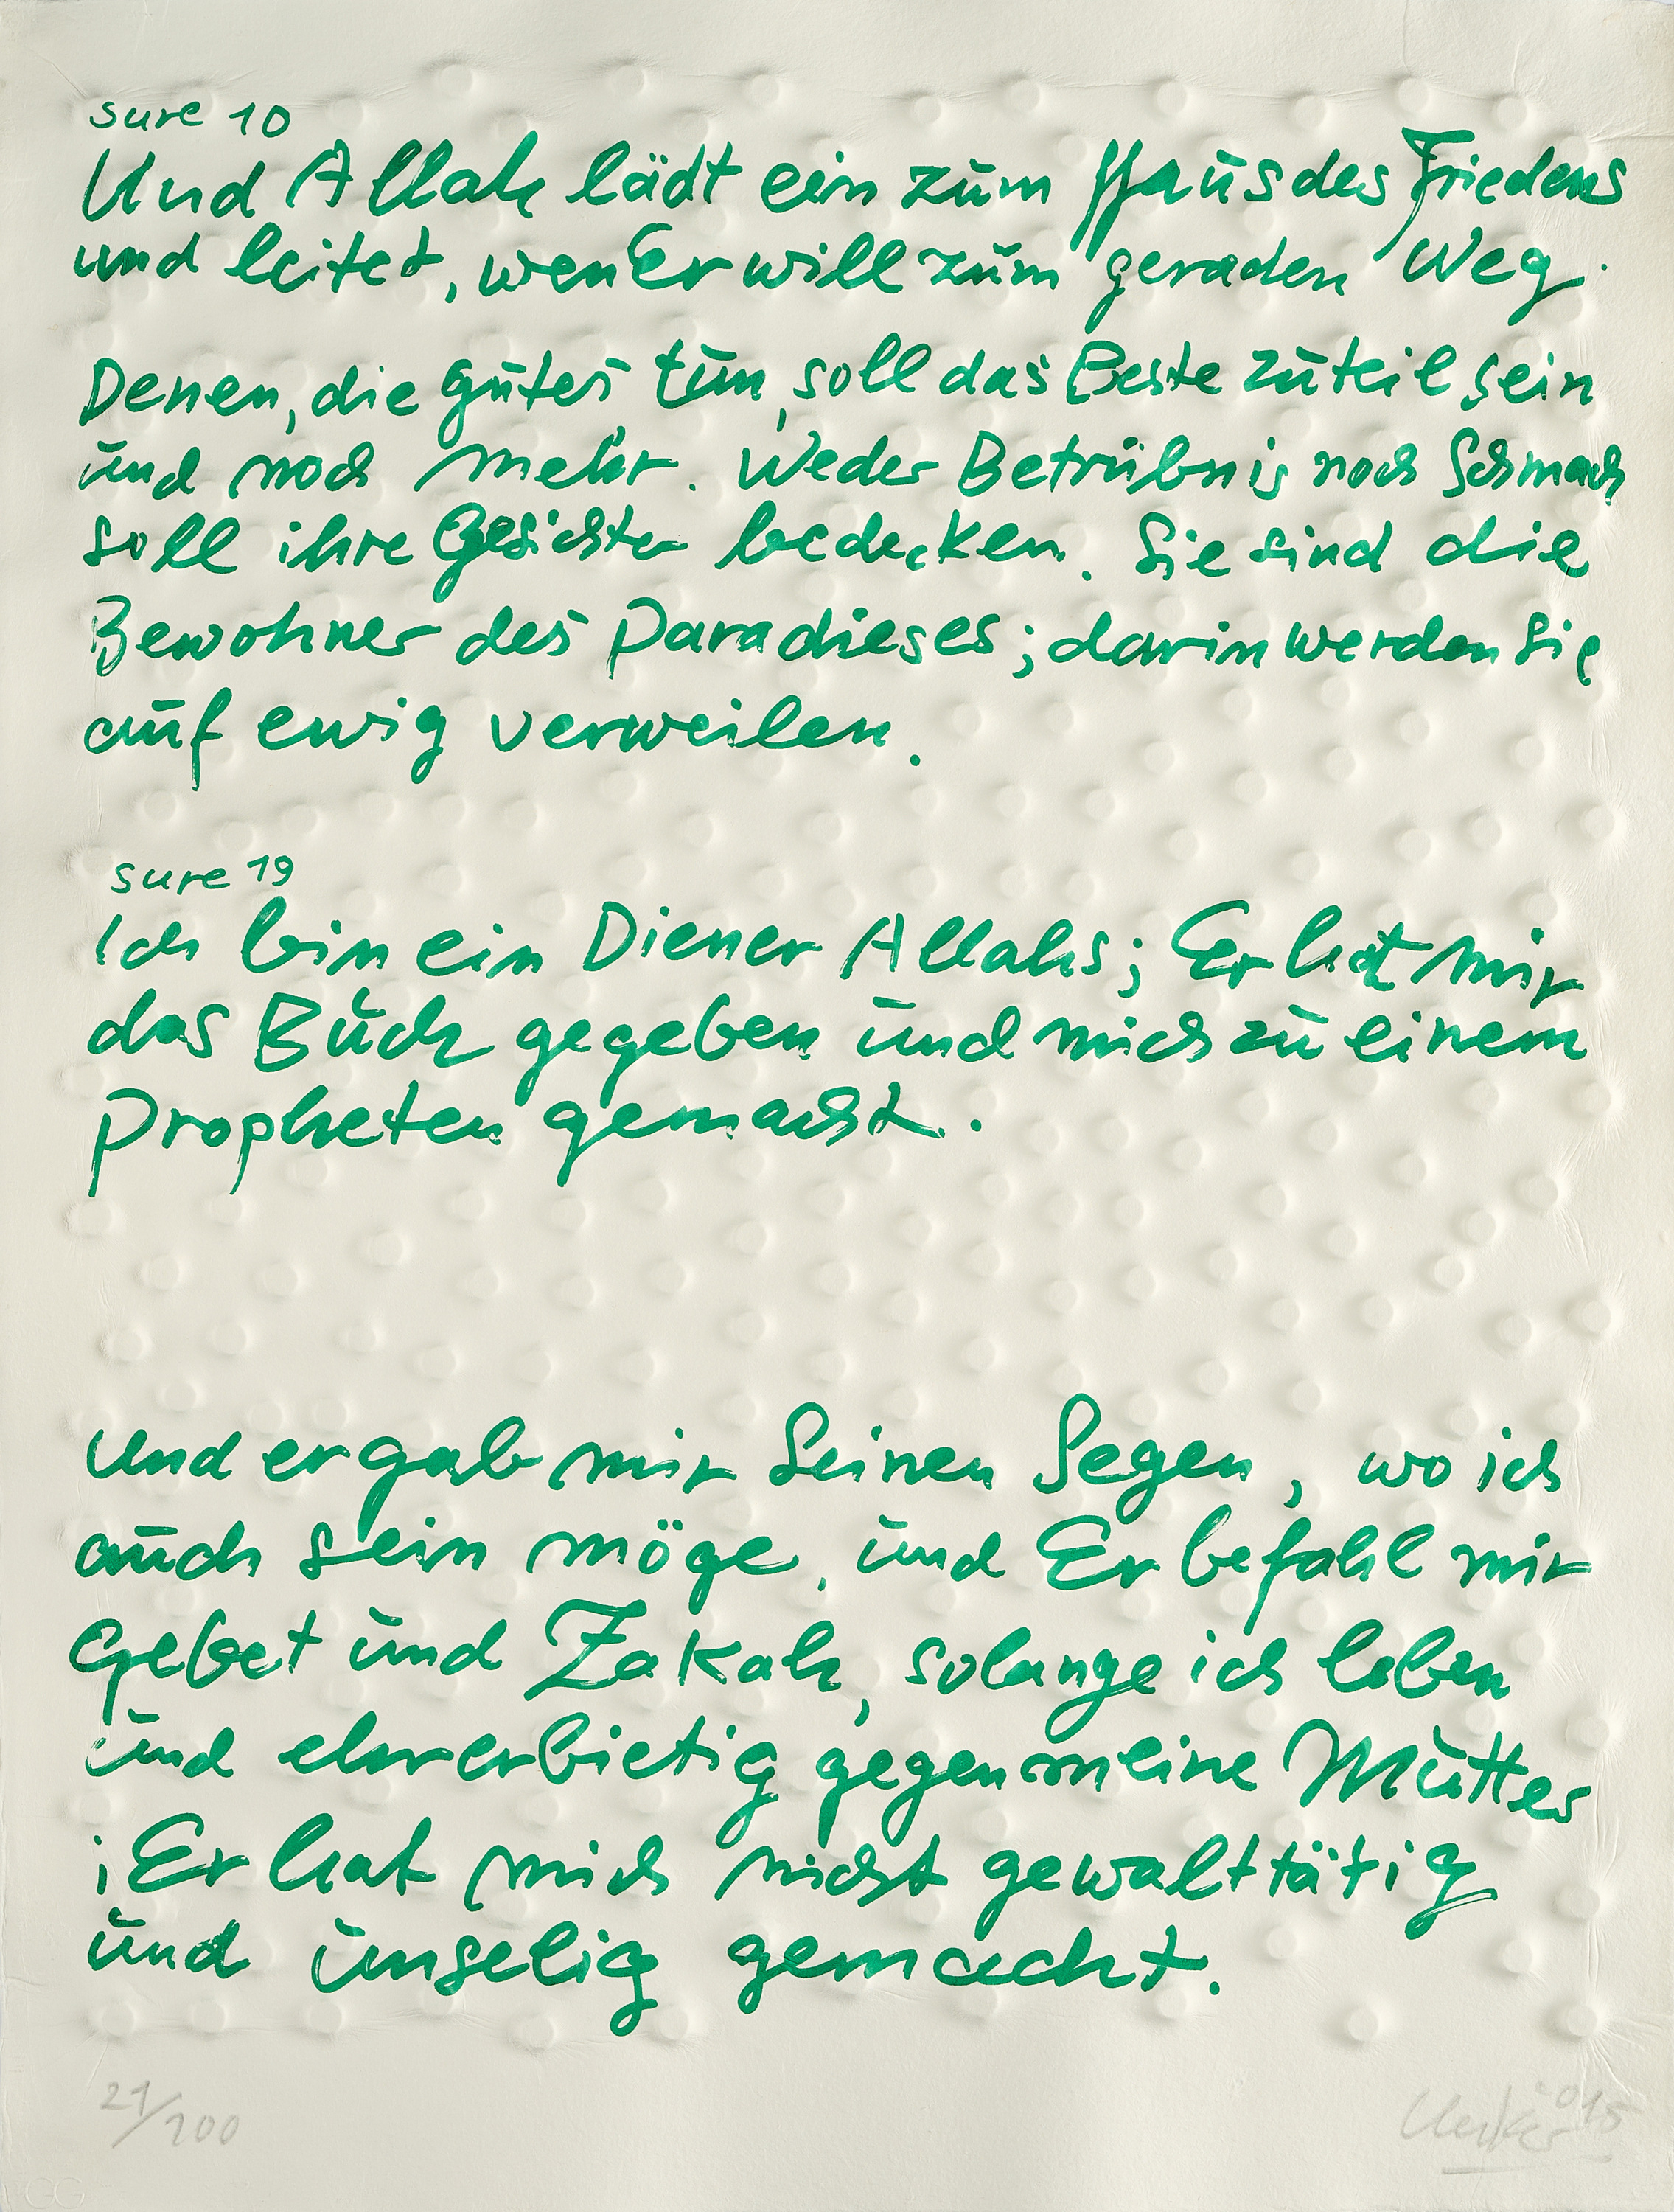 sure 10
Und Allah lädt ein zum Haus des Friedens
und leitet, wen Er will zum geraden Weg.
Denen, die gutes tun, soll das Beste zuteil sein
und noch mehr. Weder Betrübnis noch Schmach
soll ihre Gesichter bedecken. Sie sind die
Bewohner des Paradieses; darin werden Sie
auf ewig verweilen.
sure 19
Ich bin ein Diener Allahs; Er hat mir
das Buch gegeben und mich zu einem
Propheten gemacht.
Und er gab mir Seinen Segen, wo ich
auch sein möge, und Er befahl mir
Gebet und Zakah, solange ich leben
und ehrerbietig gegen meine Mutter
; Er hat mich nicht gewalttätig
und unselig gemacht.
21/100
Uecker '015